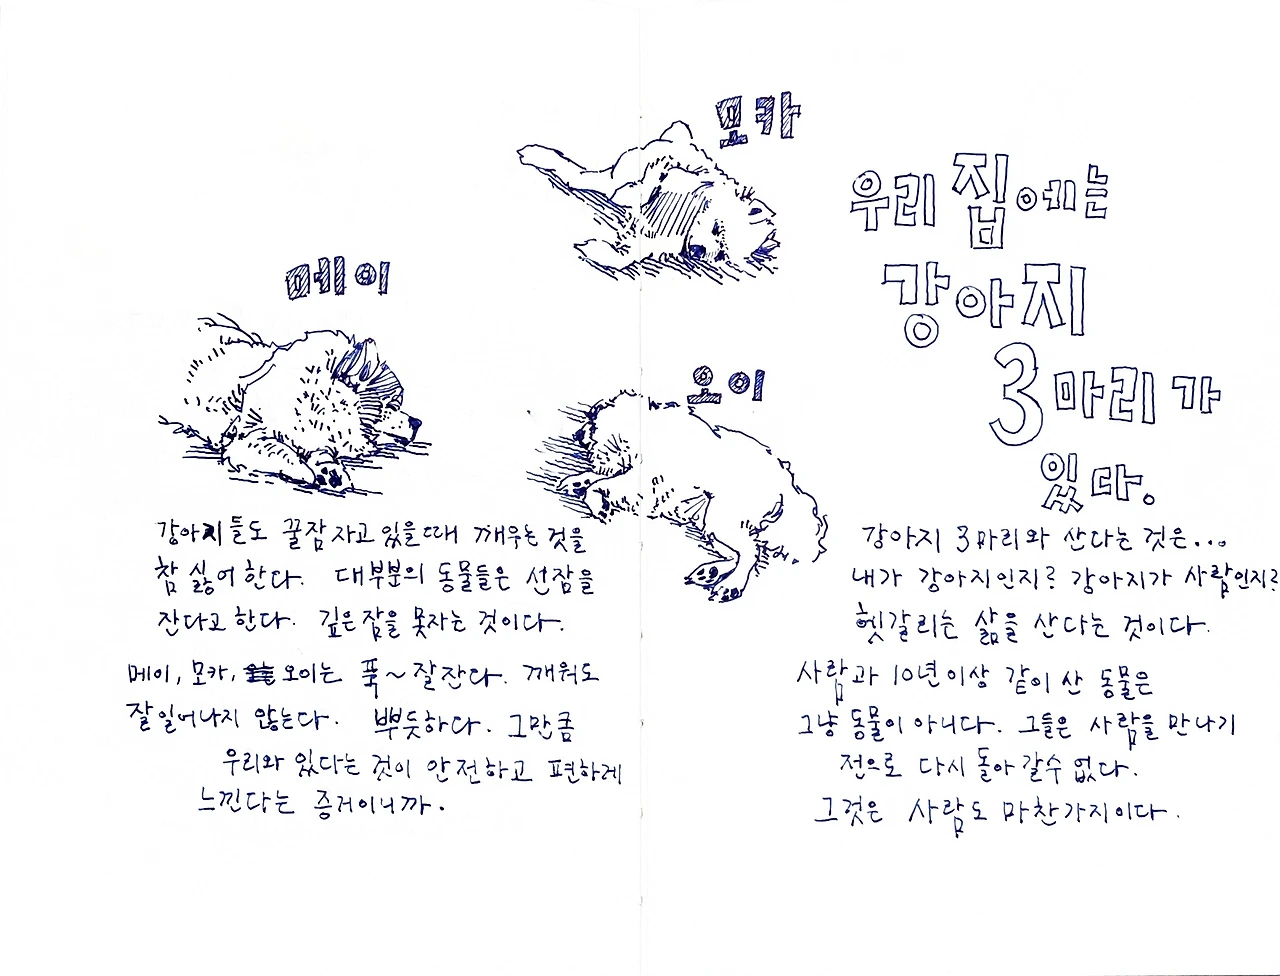 모카
메이
오이
우리 집에는
강아지
3마리가
있다.
강아지들도 꿀잠 자고 있을때 깨우는 것을
참 싫어 한다. 대부분의 동물들은 선잠을
잔다고 한다. 깊은 잠을 못자는 것이다.
메이, 모카, 오이는 푹~잘잔다. 깨워도
잘 일어나지 않는다. 뿌듯하다. 그만큼
우리와 있다는 것이 안전하고 편하게
느낀다는 증거이니까.
강아지 3마리와 산다는 것은...
내가 강아지인지? 강아지가 사람인지?
헷갈리는 삶을 산다는 것이다.
사람과 10년이상 같이 산 동물은
그냥 동물이 아니다. 그들은 사람을 만나기
전으로 다시 돌아 갈수 없다.
그것은 사람도 마찬가지이다.